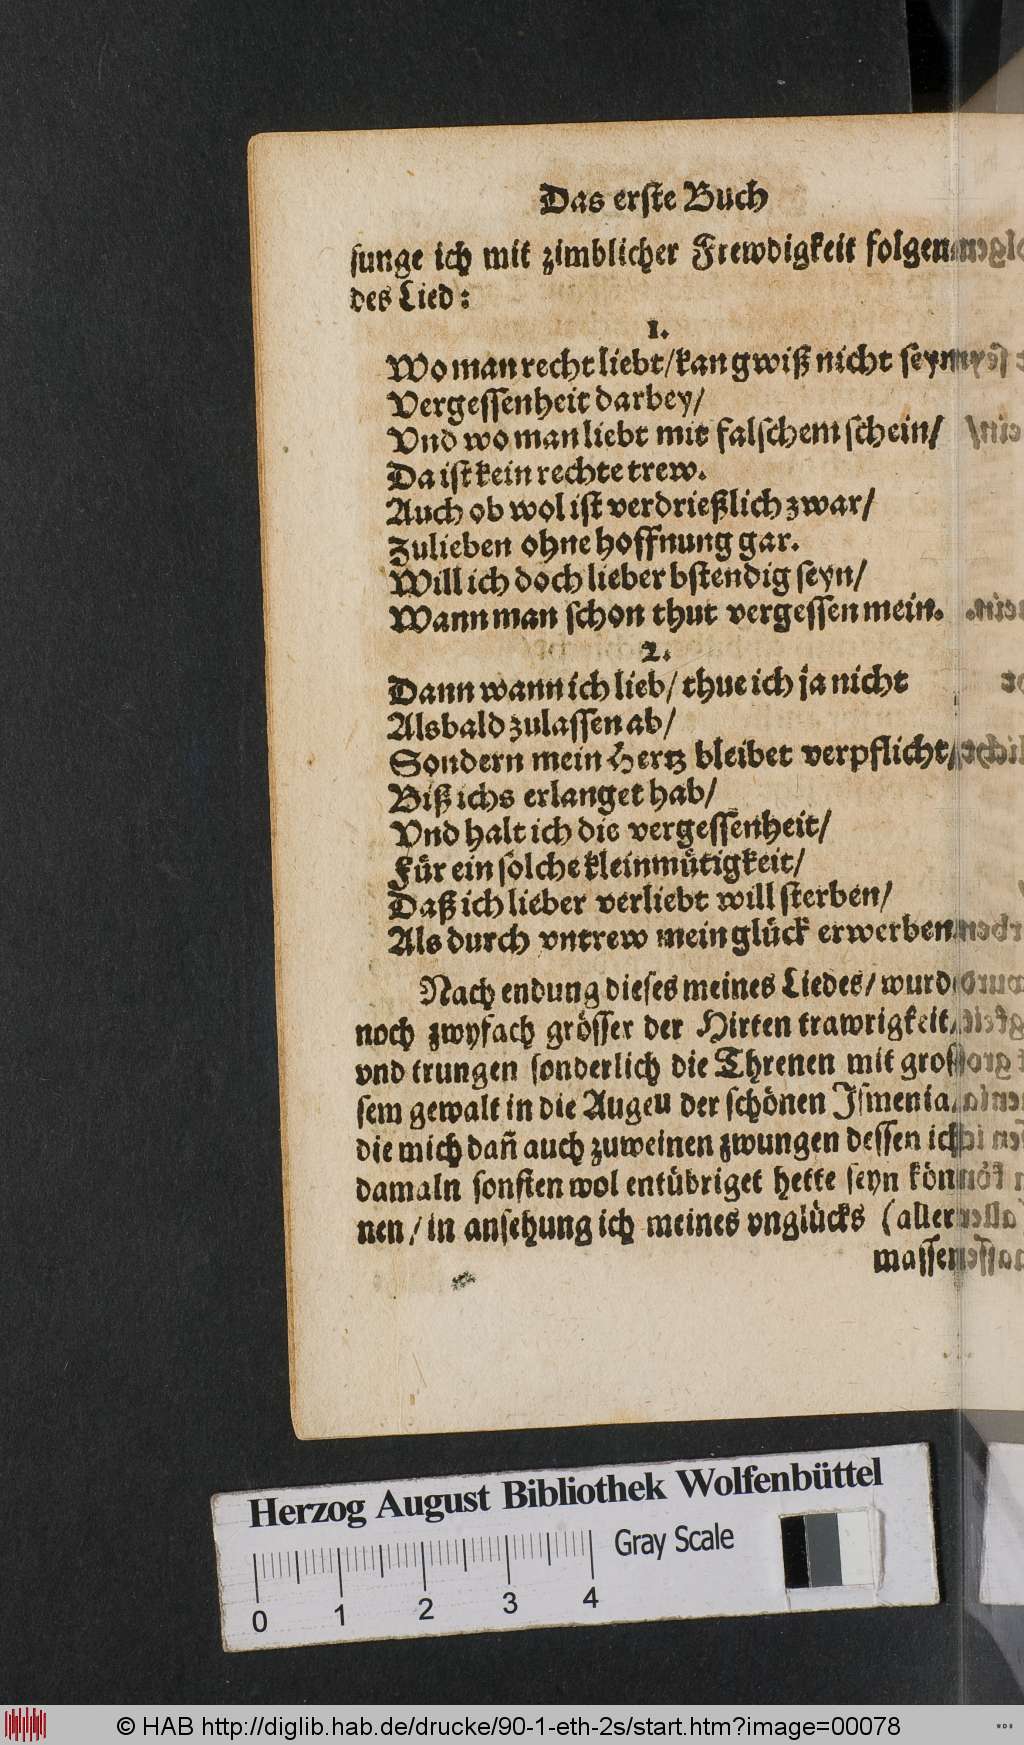 Das erste Buch
sunge ich mit zimblicher Frewdigkeit folgen⸗
des Lied:
1.
Wo man recht liebt/kan gwiß nicht seyn
Vergessenheit darbey/
Vnd wo man liebt mit falschem schein/
Da ist kein rechte trew.
Auch ob wol ist verdrießlich zwar/
Zulieben ohne hoffnung gar.
Will ich doch lieber bstendig seyn/
Wann man schon thut vergessen mein.
2.
Dann wann ich lieb/ thue ich ja nicht
Alsbald zulassen ab/
Sondern mein Hertz bleibet verpflicht/
Biß ichs erlanget hab/
Vnd halt ich die vergessenheit/
Für ein solche kleinmütigkeit/
Daß ich lieber verliebt will sterben/
Als durch vntrew mein glück erwerben.
Nach endung dieses meines Liedes/ wurd
noch zwyfach grösser der Hirten trawrigkeit/
vnd trungen sonderlich die Threnen mit gros⸗
sem gewalt in die Augeu der schönen Ismenia/
die mich dañ auch zuweinen zwungen dessen ich
damaln sonsten wol entübriget hette seyn kön⸗
nen/ in ansehung ich meines vnglücks (aller
massen
Herzog August Bibliothek Wolfenbüttel
Gray Scale
0 1 2 3 4
© HAB http://diglib.hab.de/drucke/90-1-eth-2s/start.htm?image=00078